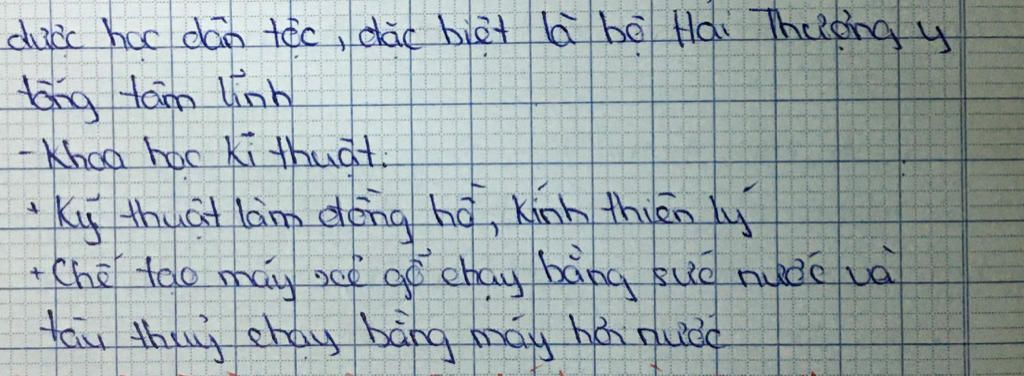 dược học dân tộc, đặc biệt là bộ Hải Thượng y
tông tâm lĩnh
- Khoa học kĩ thuật:
+ Kỹ thuật làm đồng hồ, kính thiên lý
+ Chế tạo máy xẻ gỗ chạy bằng sức nước và
tàu thuỷ chạy bằng máy hơi nước